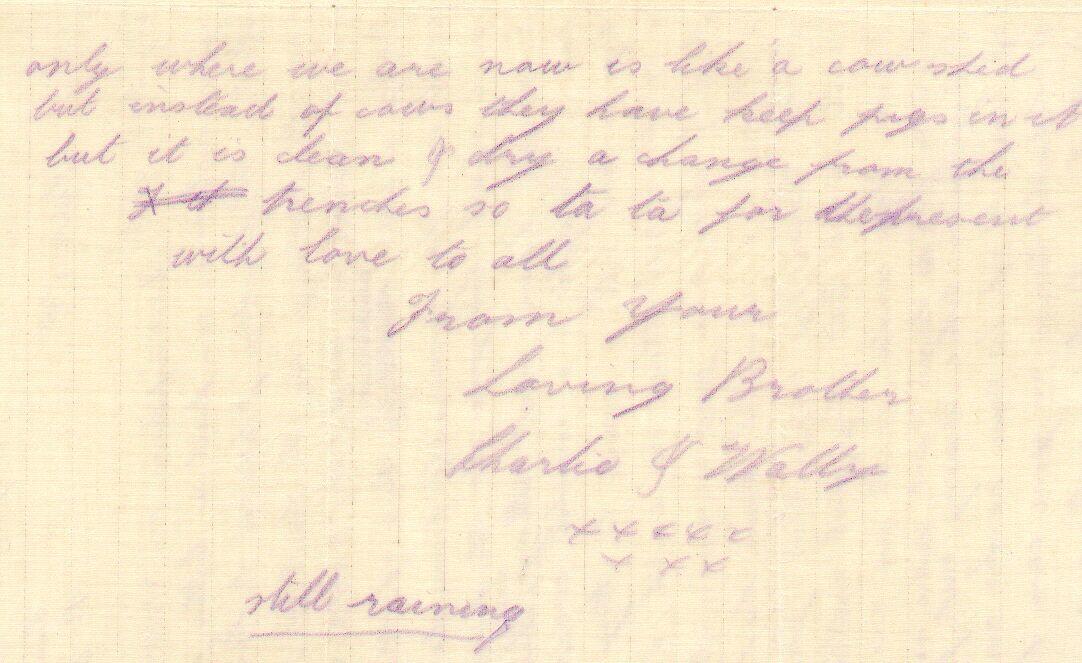 only where we are now is like a cow shed
but instead of cows they have keep pigs in it
but it is clean & dry a change from the
trenches so ta ta for the present
with love to all
From Your
Loving Brother
Charlie & Wally
x x x x x
x x x
still raining